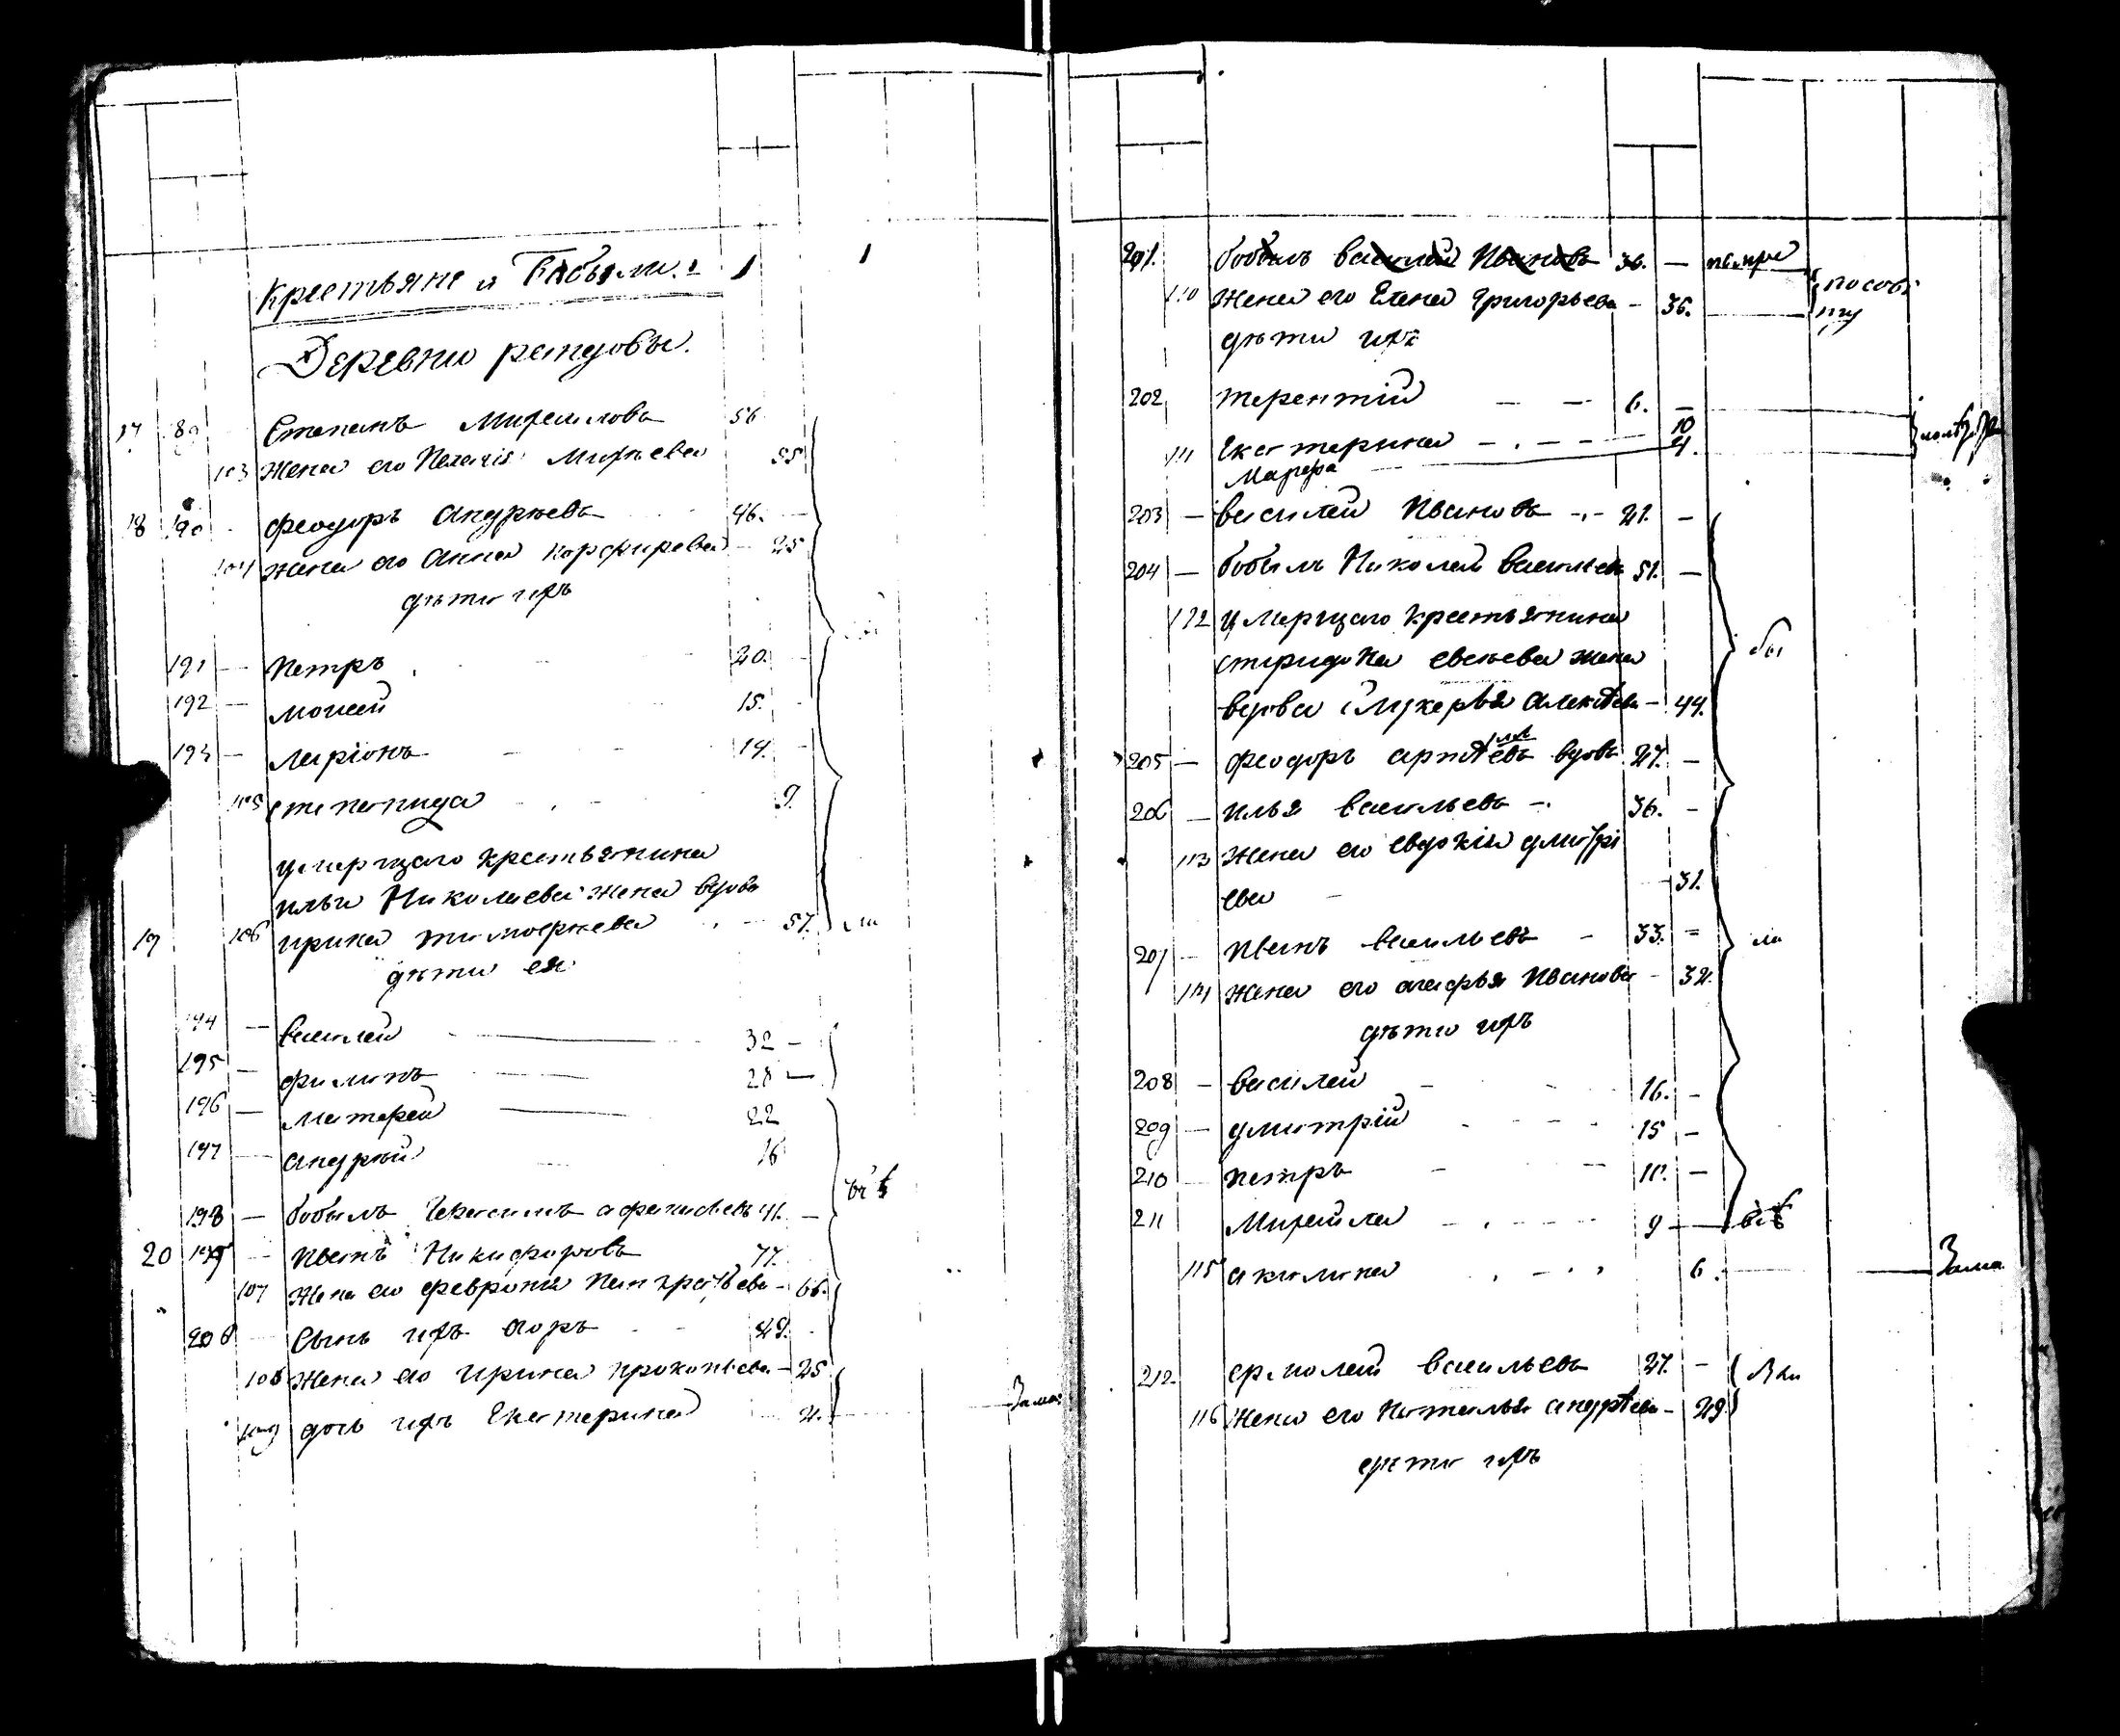 Крестьяне и Бобыли.
Деревни
17 89 Степанъ Михаиловъ 56
103 жена его Пелагія 55
18 190 Феодоръ Андреевъ 46.
104 жена его Анна Порфирьева 25
дѣти ихъ
191 — Петръ 20.
192 — Моисей 15.
193 — Ларіонъ 14.
105 Степанида 9.
умершаго крестьянина
Ильи Николаева жена вдова
19 106 Ирина Тимофеева 57. ли
дѣти ея
194 — Василей 32 —
195 — Филипъ 28 —
196 — Матфей 22
197 — Андрей 16
198 — бобыль Герасимъ Афанасьевъ 41. —
20 199 — Иванъ Никифоровъ 77.
107 жена его Феврония Панкратьева — 66.
200 Сынъ ихъ Егоръ 29.
108 жена его Ирина Прокопьева — 25
109 дочь ихъ Екатерина 2.
201. бобыль Василей Ивановъ 36. —
110 жена его Елена Григорьева — 36.
дѣти ихъ
202 Терентій — — 6. —
10
111 Екатерина — 4.
Марфа
203 — Василей Ивановъ — 21. —
204 — бобыль Николай Васильевъ 51. —
112 умершаго крестьянина
Спиридона Евсеева жена
бы
вдова Глукерья Алексѣева — 44.
205 — Феодоръ вдовъ 27. —
206 — Илья Васильевъ — 36. —
113 жена его Евдокія Дмитрі
ева — 31.
207 — Иванъ Васильевъ — 33. — ли
114 жена его Агафья Иванова — 32.
дѣти ихъ
208 — Василей — 16. —
209 — Дмитрій 15 —
210 — Петръ — 10. —
211 Михаила 9 —
115 Акилина 6.
212. Ермолай Васильевъ 27. —
116 жена его Наталья Андрѣева — 29.
дѣти ихъ